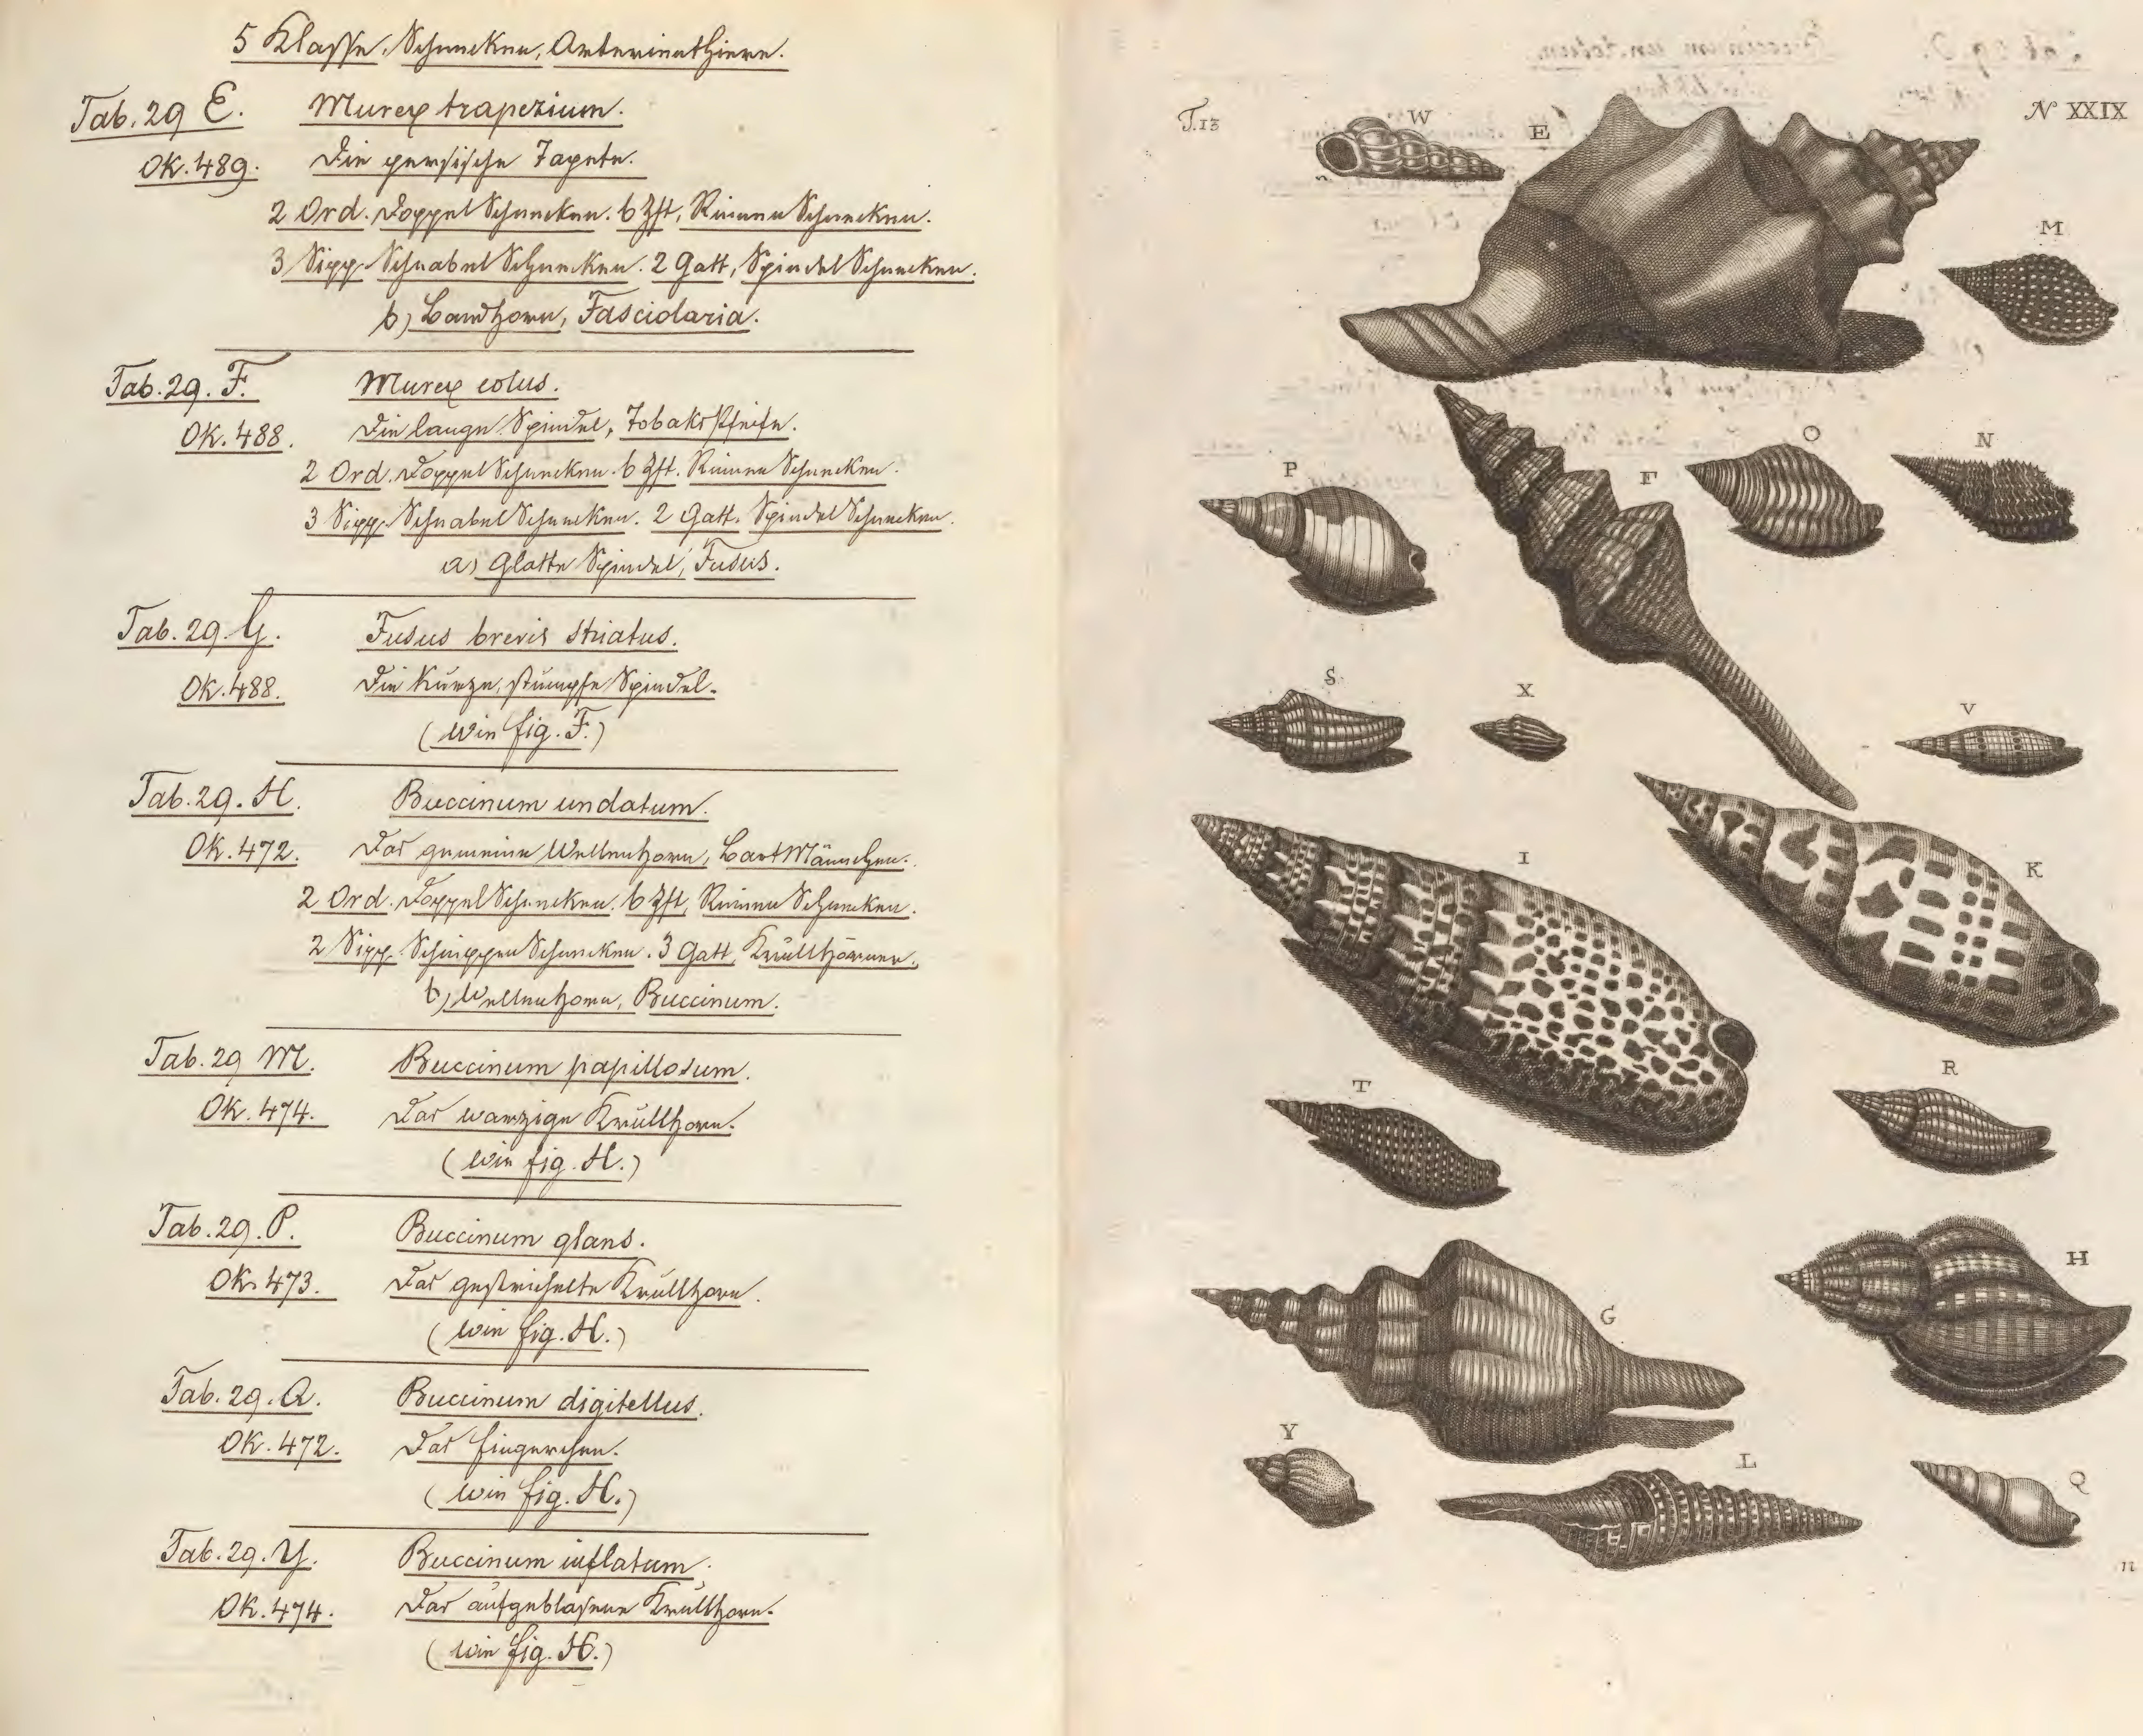 5 Klasse, Schnecken, Aderinnthiere.
Tab. 29 E. Murex trapezium.
OK. 489. Die persische Tapete.
2 Ord. Doppel Schnecken. 6 Zft, Rinnen Schnecken.
3 Sipp. Schnabel Schnecken. 2 Gatt, Spindel Schnecken.
b) Bandhorn, Fasciolaria.
Tab. 29. F. Murex colus.
OK. 488. Die lange Spindel, Tobaks Pfeife.
2 Ord. Doppel Schnecken. 6 Zft. Rinnen Schnecken.
3 Sipp. Schnabel Schnecken. 2 Gatt. Spindel Schnecken.
a) Glatte Spindel, Fusus.
Tab. 29. G. Fusus brevis striatus.
OK. 488. Die kurze, stumpfe Spindel.
(wie fig. F.)
Tab. 29. H. Buccinum undatum.
OK. 472. Das gemeine Wellenhorn, Bartmännchen.
2 Ord. Doppel Schnecken. 6 Zft, Rinnen Schnecken.
2 Sipp. Schuppen Schnecken. 3 Gatt, Krüllhörner.
b) Wellenhorn, Buccinum.
Tab. 29 M. Buccinum papillosum.
OK. 474. Das warzige Krüllhorn.
(wie fig. H.)
Tab. 29. P. Buccinum glans.
OK. 473. Das gestrichelte Krüllhorn.
(wie fig. H.)
Tab. 29. Q. Buccinum digitellus.
OK. 472. Das Fingerchen.
(wie fig. H.)
Tab. 29. Y. Buccinum inflatum.
OK. 474. Das aufgeblasene Krüllhorn.
(wie fig. H.)
T.13
N XXIX
W
E
M
P
F
O
N
S
X
V
I
K
T
R
G
H
Y
L
Q
n